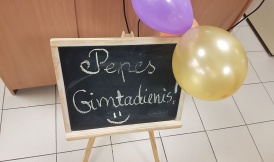 Pepes
Gimtadienis!